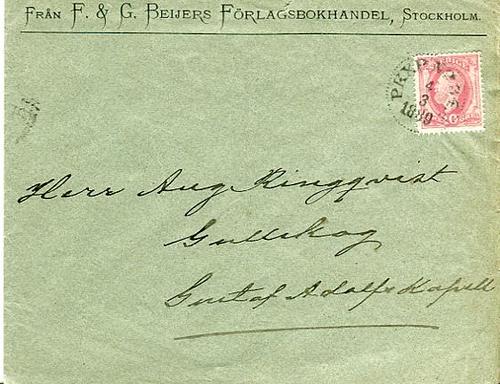 FRÅN F. & G. BEIJERS FÖRLAGSBOKHANDEL, STOCKHOLM.
4
3
1889
Herr Aug Ringqvist
Gullskog
Gustaf Adolfs Kapell